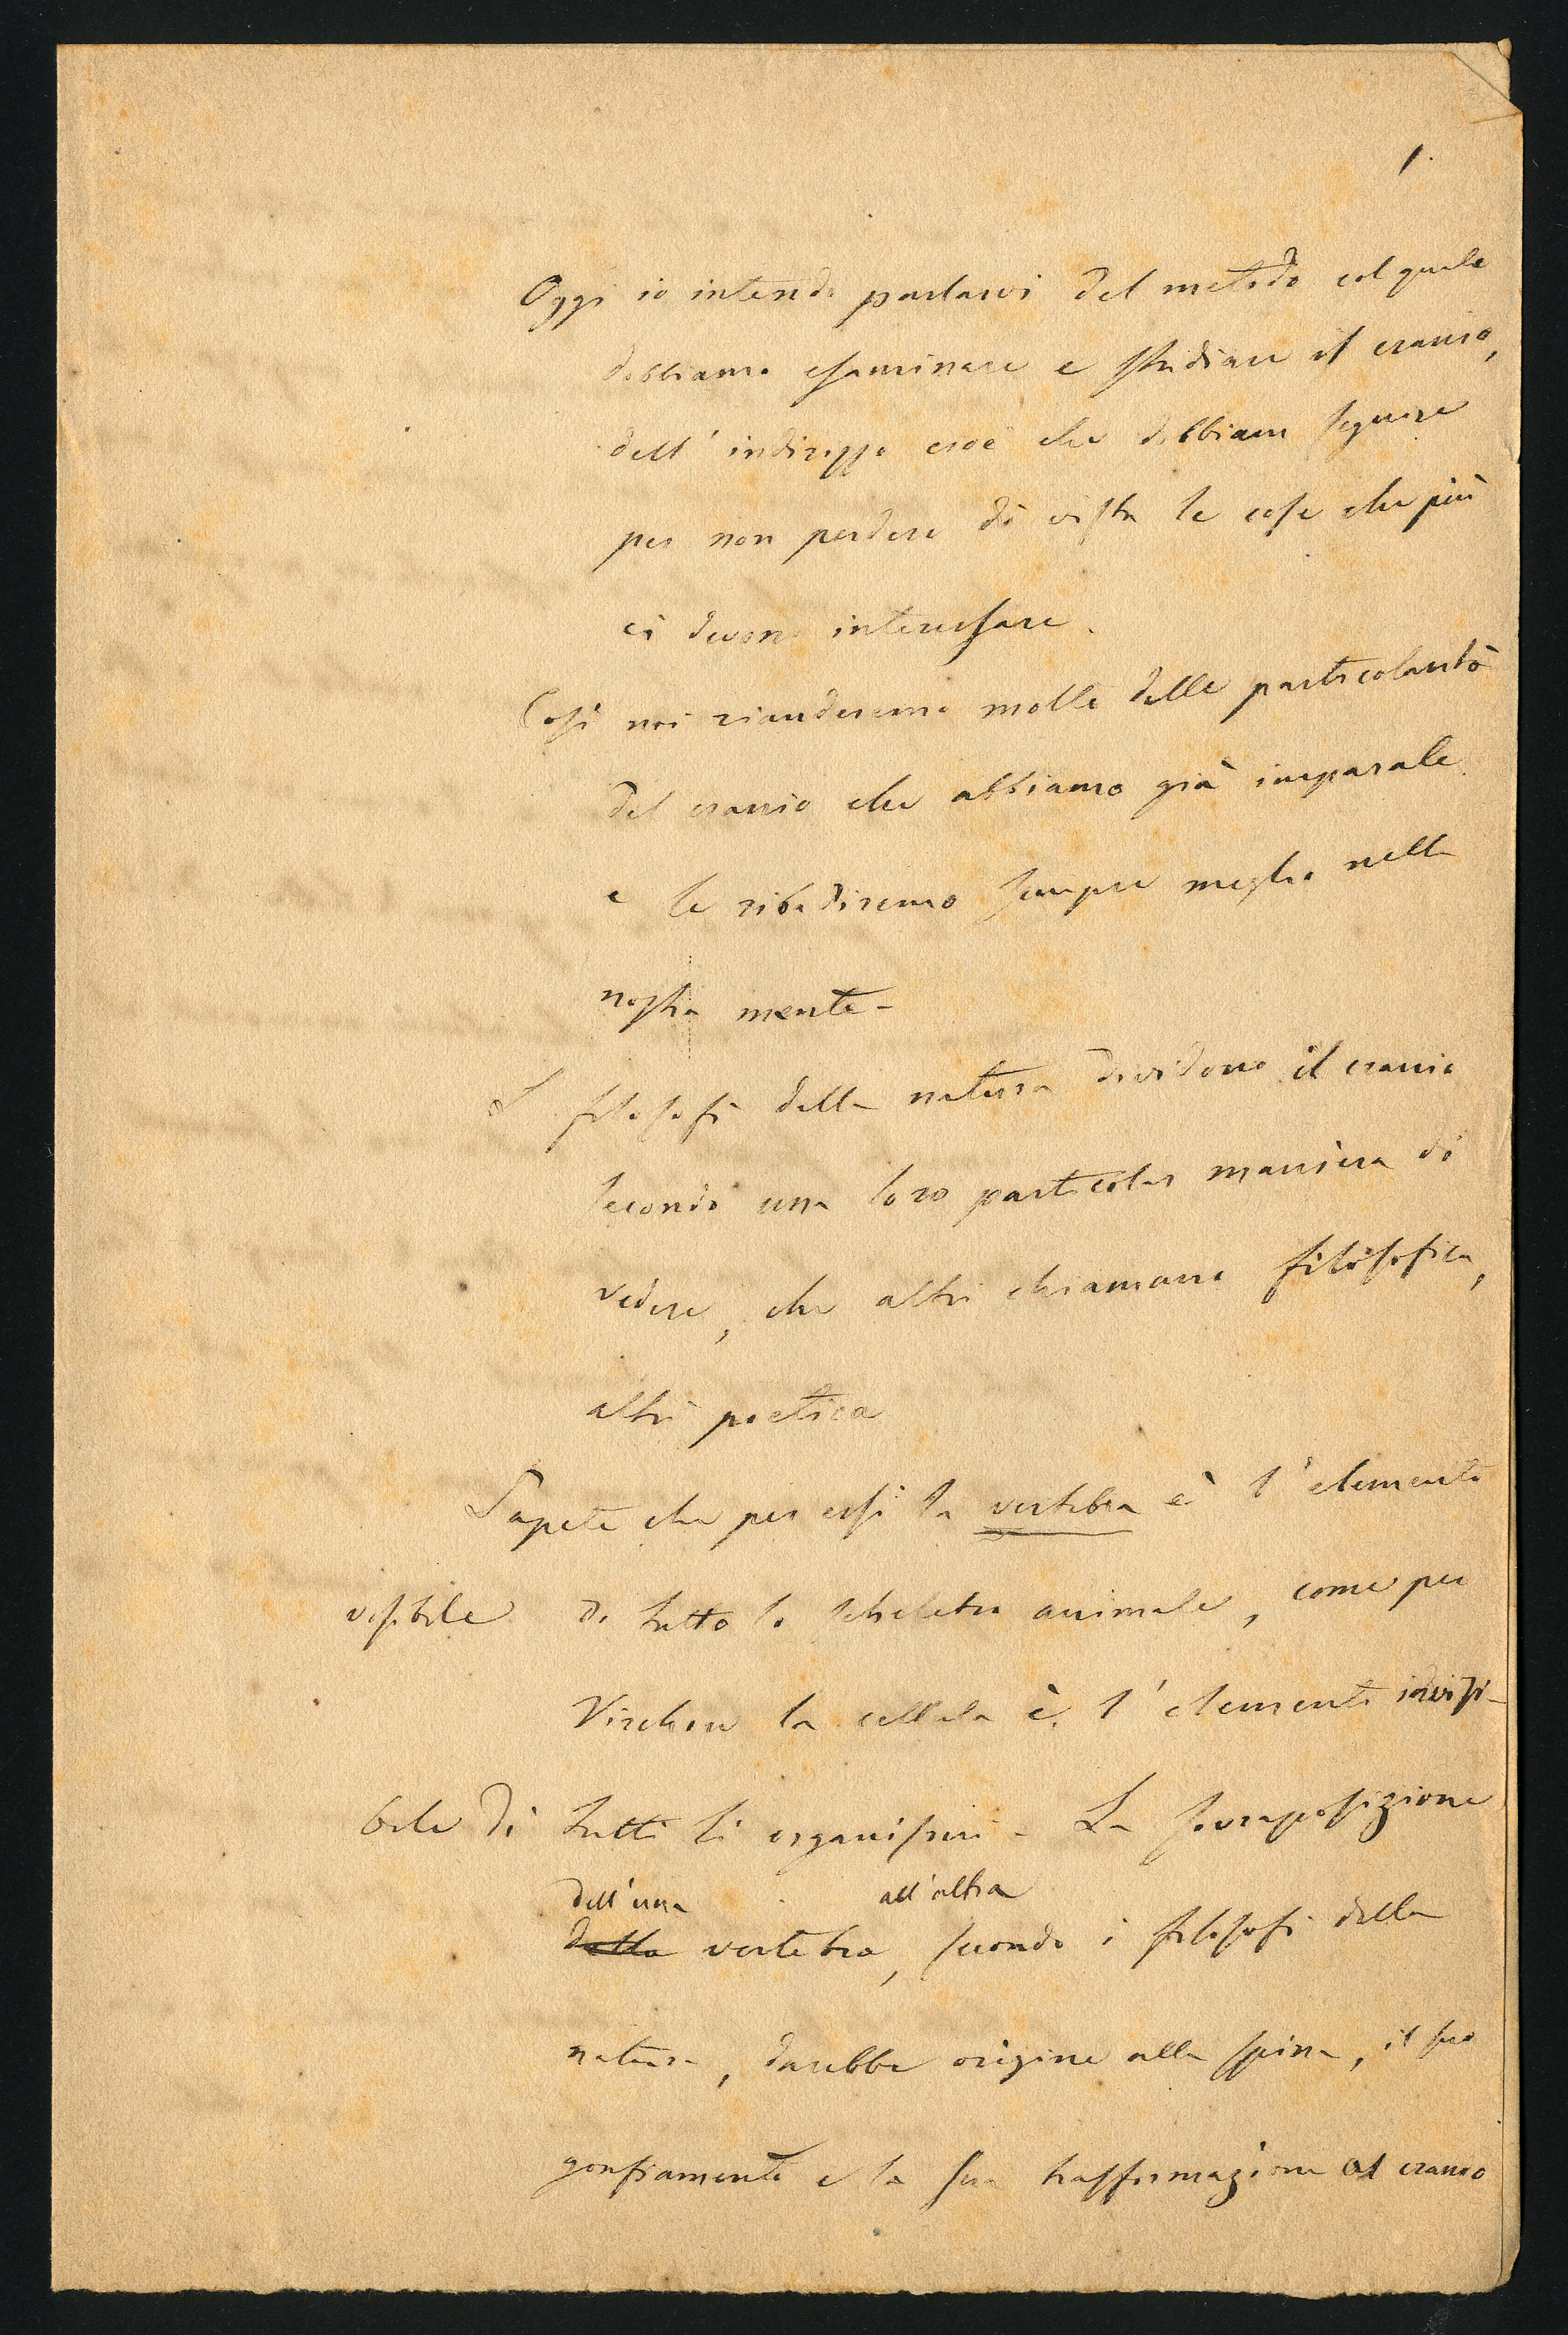 1.
Oggi io intendo parlarvi del metodo col quale
dobbiamo esaminare e studiare il cranio,
dell'indirizzo cioè che dobbiam seguire
per non perdere di vista le cose che più
ci devono interessare.
Così noi rianderemo molte delle particolarità
del cranio che abbiamo già imparate
e le ribadiremo sempre meglio nella
nostra mente -
I filosofi della natura dividono il cranio
secondo una loro particolar maniera di
vedere, che altri chiamano filosofica,
altri poetica
Sapete che per essi la vertebra è l'elemento
visibile di tutto lo scheletro animale, come per
Virchow la cellula è l'elemento invisi-
bile di tutti li organismi - La sovraposizione
dell'una all'altra
della vertebra, secondo i filosofi della
natura, darebbe origine alla spina, il suo
gonfiamento e la sua trasformazione al cranio